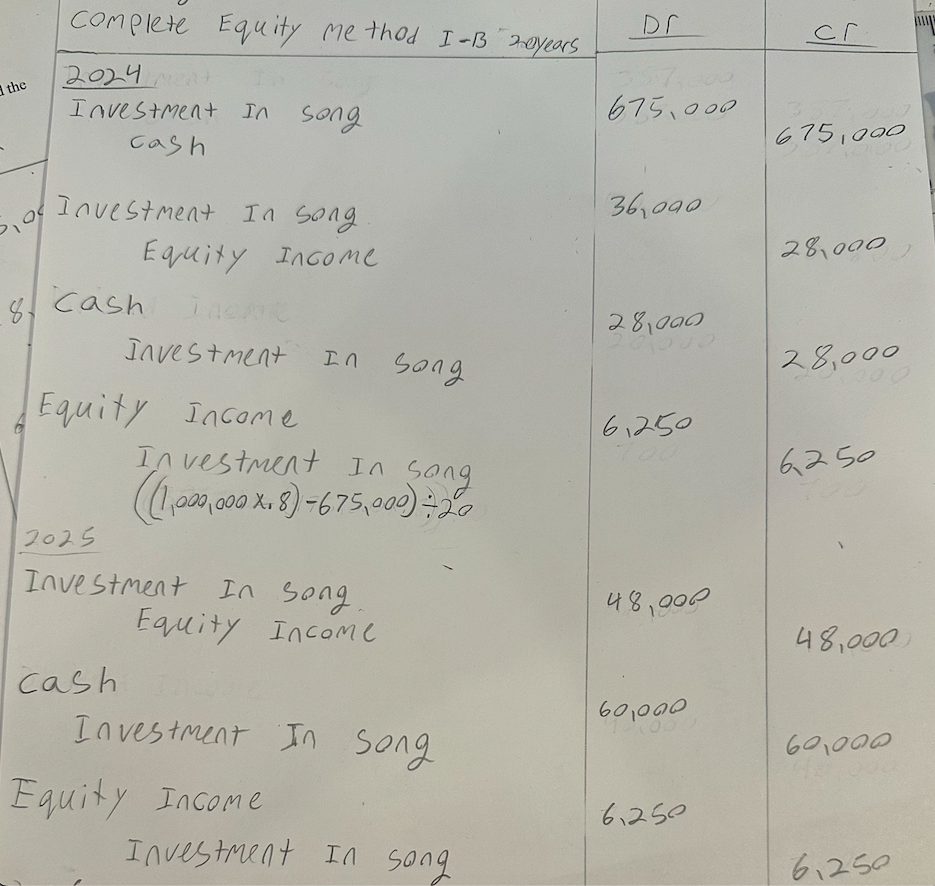 Complete Equity Method I-B 20years Dr Cr
d the
2024
Investment In song 675,000
cash 675,000
Investment In song 36,000
Equity Income 28,000
cash 28,000
8
Investment In song 28,000
Equity Income 6,250
Investment In song 6,250
((1,000,000 x .8) - 675,000) ÷ 20
2025
Investment In song 48,000
Equity Income 48,000
cash 60,000
Investment In song 60,000
Equity Income 6,250
Investment In song 6,250